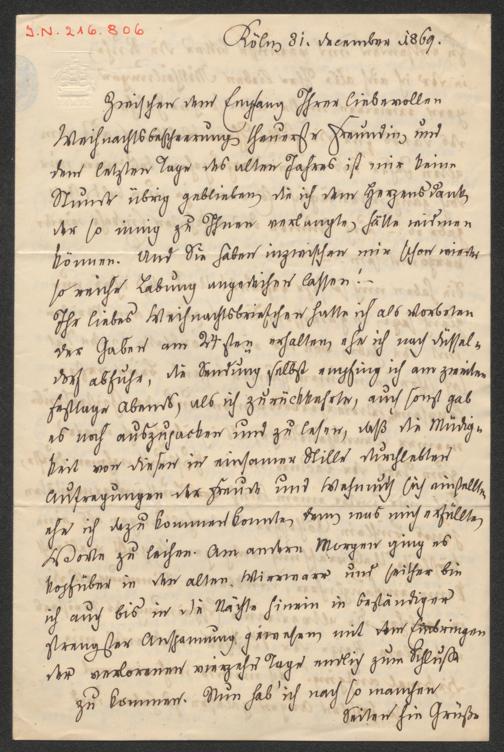 J.N. 216.806
Köln 31. December 1869.
Zwischen dem Empfang Ihrer liebevollen
Weihnachtsbescheerung, theuerste Freundin, und
dem letzten Tage des alten Jahres ist mir keine
Stunde übrig geblieben, die ich dem Herzensdank,
der so innig zu Ihnen verlangte, hätte widmen
können. Und Sie haben inzwischen mir schon wieder
so reiche Labung angedeihen lassen! –
Ihr liebes Weihnachtsbriefchen hatte ich als Vorboten
der Gaben am 24sten erhalten, ehe ich nach Düssel-
dorf abfuhr, die Sendung selbst empfing ich am zweiten
Festtage Abends, als ich zurückkehrte, auch sonst gab
es noch auszupacken und zu lesen, daß die Müdig-
keit von diesen in einsamer Stille durchlebten
Aufregungen der Freude und Wehmuth sich einstellte,
ehe ich dazu kommen konnte, dem was mich erfüllte,
Worte zu leihen. Am andern Morgen ging es
kopfüber in den alten Wirrwarr und seither bin
ich auch bis in die Nächte hinein in beständiger
strengster Anspannung gewesen, mit dem Einbringen
der verlorenen vierzehn Tage endlich zum Schluß
zu kommen. Nun hab' ich nach so manchen
Seiten hin Grüße